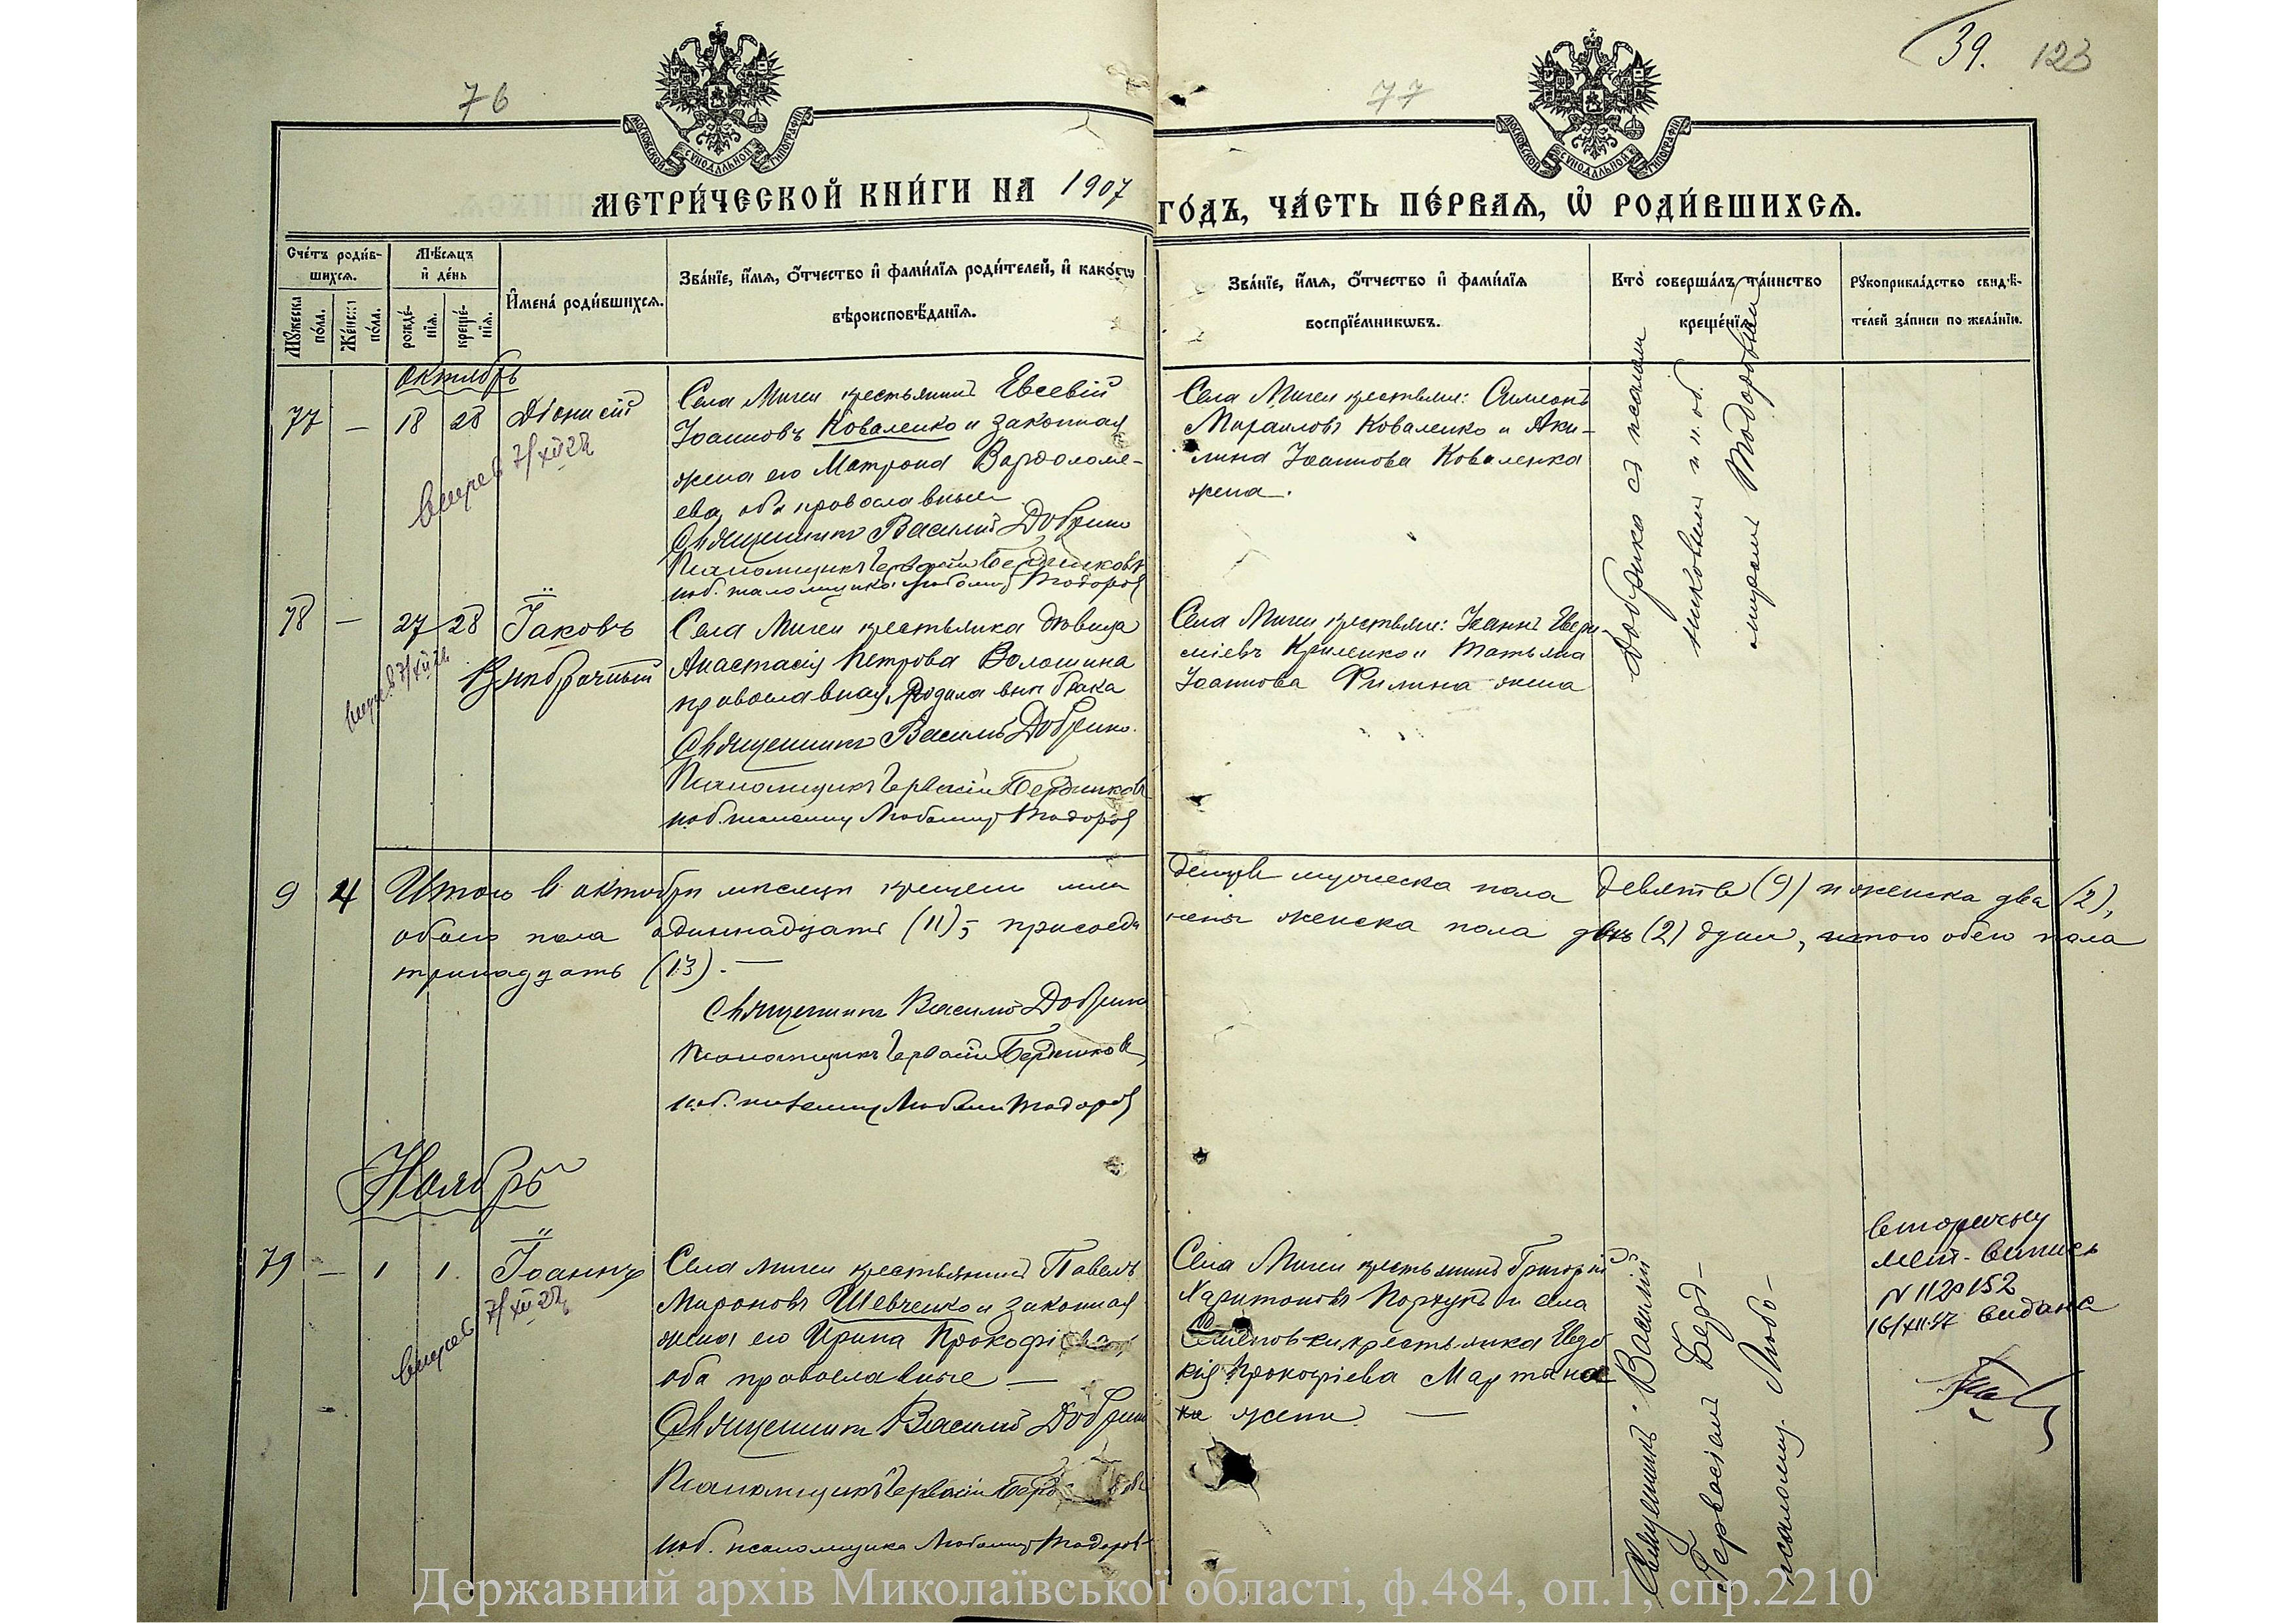 76
77
39.
123
МОСКОВСКОЙ СѴНОДАЛЬНОЙ ТИПОГРАФІИ
МОСКОВСКОЙ СѴНОДАЛЬНОЙ ТИПОГРАФІИ
МЕТРИ́ЧЕСКОЙ КНИ́ГИ НА 1907
ГО́ДЪ, ЧА́СТЬ ПЕ́РВАѦ, Ѡ҆ РОДИ́ВШИХСѦ.
Сче́тъ роди́в-
шихсѧ.
Мꙋ́жеска по́ла.
Же́нска по́ла.
Мѣ́сѧцъ
и҆ де́нь
рожде́-
нїѧ.
креще́-
нїѧ.
И҆мена̀ роди́вшихсѧ.
Зва́нїе, и҆́мѧ, ѻ҆́тчество и҆ фами́лїѧ роди́телей, и҆ како́гѡ
вѣроисповѣ́данїѧ.
Зва́нїе, и҆́мѧ, ѻ҆́тчество и҆ фами́лїѧ
воспрїе́мникѡвъ.
Кто̀ соверша́лъ та́инство
креще́нїѧ.
Рꙋкоприкла́дство свидѣ́-
телей за́писи по жела́нїю.
Октябрь
77 — 18 28 Діонисій
Села Мигеи крестьянинъ Евсевій
Іоанновъ Коваленко и законная
жена его Матрона Варфоломе-
ева, оба православные
Священникъ Василій Добрин
Псаломщикъ Гервасій Бердниковъ
Села Мигеи крестьяне: Симеонъ
Михаиловъ Коваленко и Аки-
лина Іоаннова Коваленка
жена.
78 — 27 28 Іаковъ
Внѣбрачный
Села Мигеи крестьянка дѣвица
Анастасія Петрова Волошина
православная, родила внѣ брака
Священникъ Василій Добрин
Псаломщикъ Гервасій Бердниковъ
Села Мигеи крестьяне: Іоаннъ
Криленко и Татьяна
Іоаннова Филина жена
9 4 Итого въ октябрѣ мѣсяцѣ крещено мла
денцевъ мужеска пола девять (9) и женска два (2),
обоего пола одиннадцать (11); присоеди
нено женска пола двѣ (2) души, итого обоего пола
тринадцать (13). —
Священникъ Василій Добрин
Псаломщикъ Гервасій Бердниковъ
Ноябрь
79 — 1 1. Іоаннъ
Села Мигеи крестьянинъ Павелъ
Мироновъ Шевченко и законная
жена его Ирина Прокофіева,
оба православные —
Священникъ Василій Добрин
Псаломщикъ Гервасій
исп. псаломщика Любомиръ Тодоровъ
Села Мигеи крестьянинъ Григорій
Харитоновъ и села
крестьянка Евдо
кія Прокофіева Мартына
жена. —
Священникъ Василій
Гервасій Берд-
псаломщ. Любо-
вторичну
мет. випись
N 1120152
16/XII.57 видана
Державний архів Миколаївської області, ф.484, оп.1, спр.2210